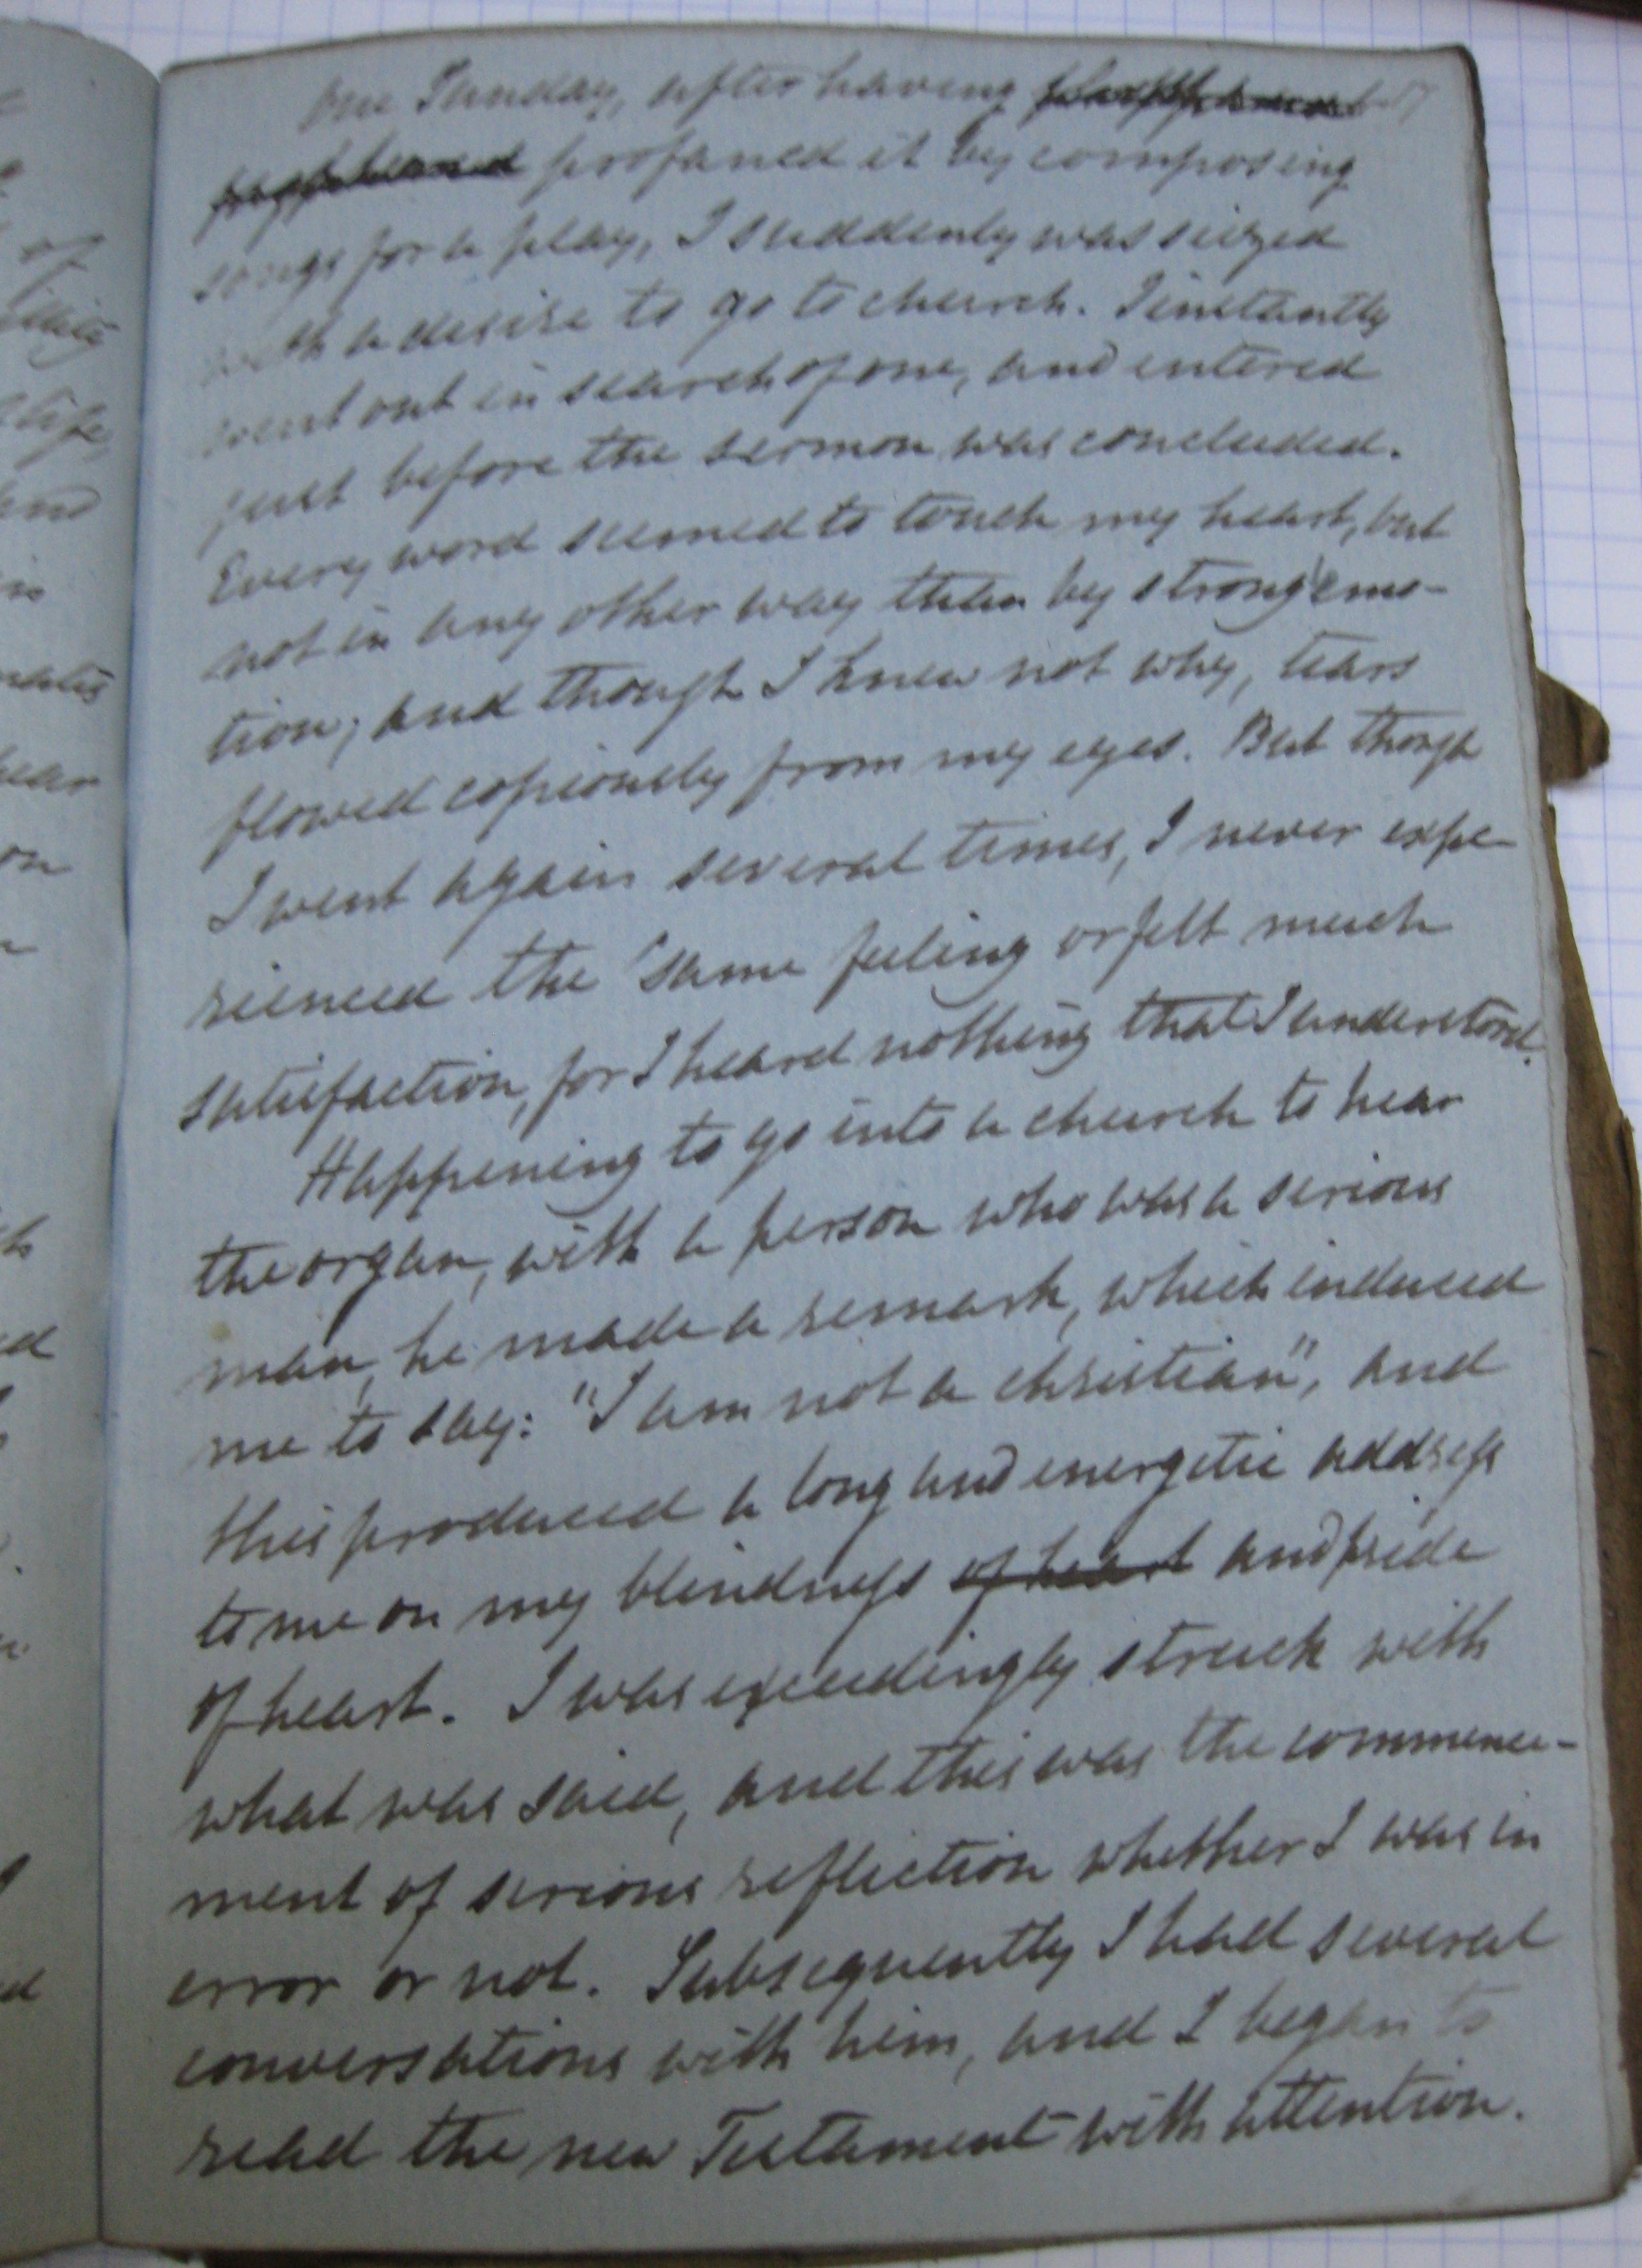 One Sunday, after having
profaned it by composing
songs for a play, I suddenly was siezed
with a desire to go to church. I instantly
went out in search of one, and entered
just before the sermon was concluded.
Every word seemed to touch my heart, but
not in any other way than by strong emo-
tion; and though I knew not why, tears
flowed copiously from my eyes. But though
I went again several times, I never expe-
rienced the same feeling or felt much
satisfaction, for I heard nothing that I understood.
Happening to go into a church to hear
the organ, with a person who was a serious
man, he made a remark, which induced
me to say: "I am not a christian", and
this produced a long and energetic address
to me on my blindness of heart and pride
of heart. I was exceedingly struck with
what was said, and this was the commence-
ment of serious reflection whether I was in
error or not. Subsequently I had several
conversations with him, and I began to
read the new Testament with attention.